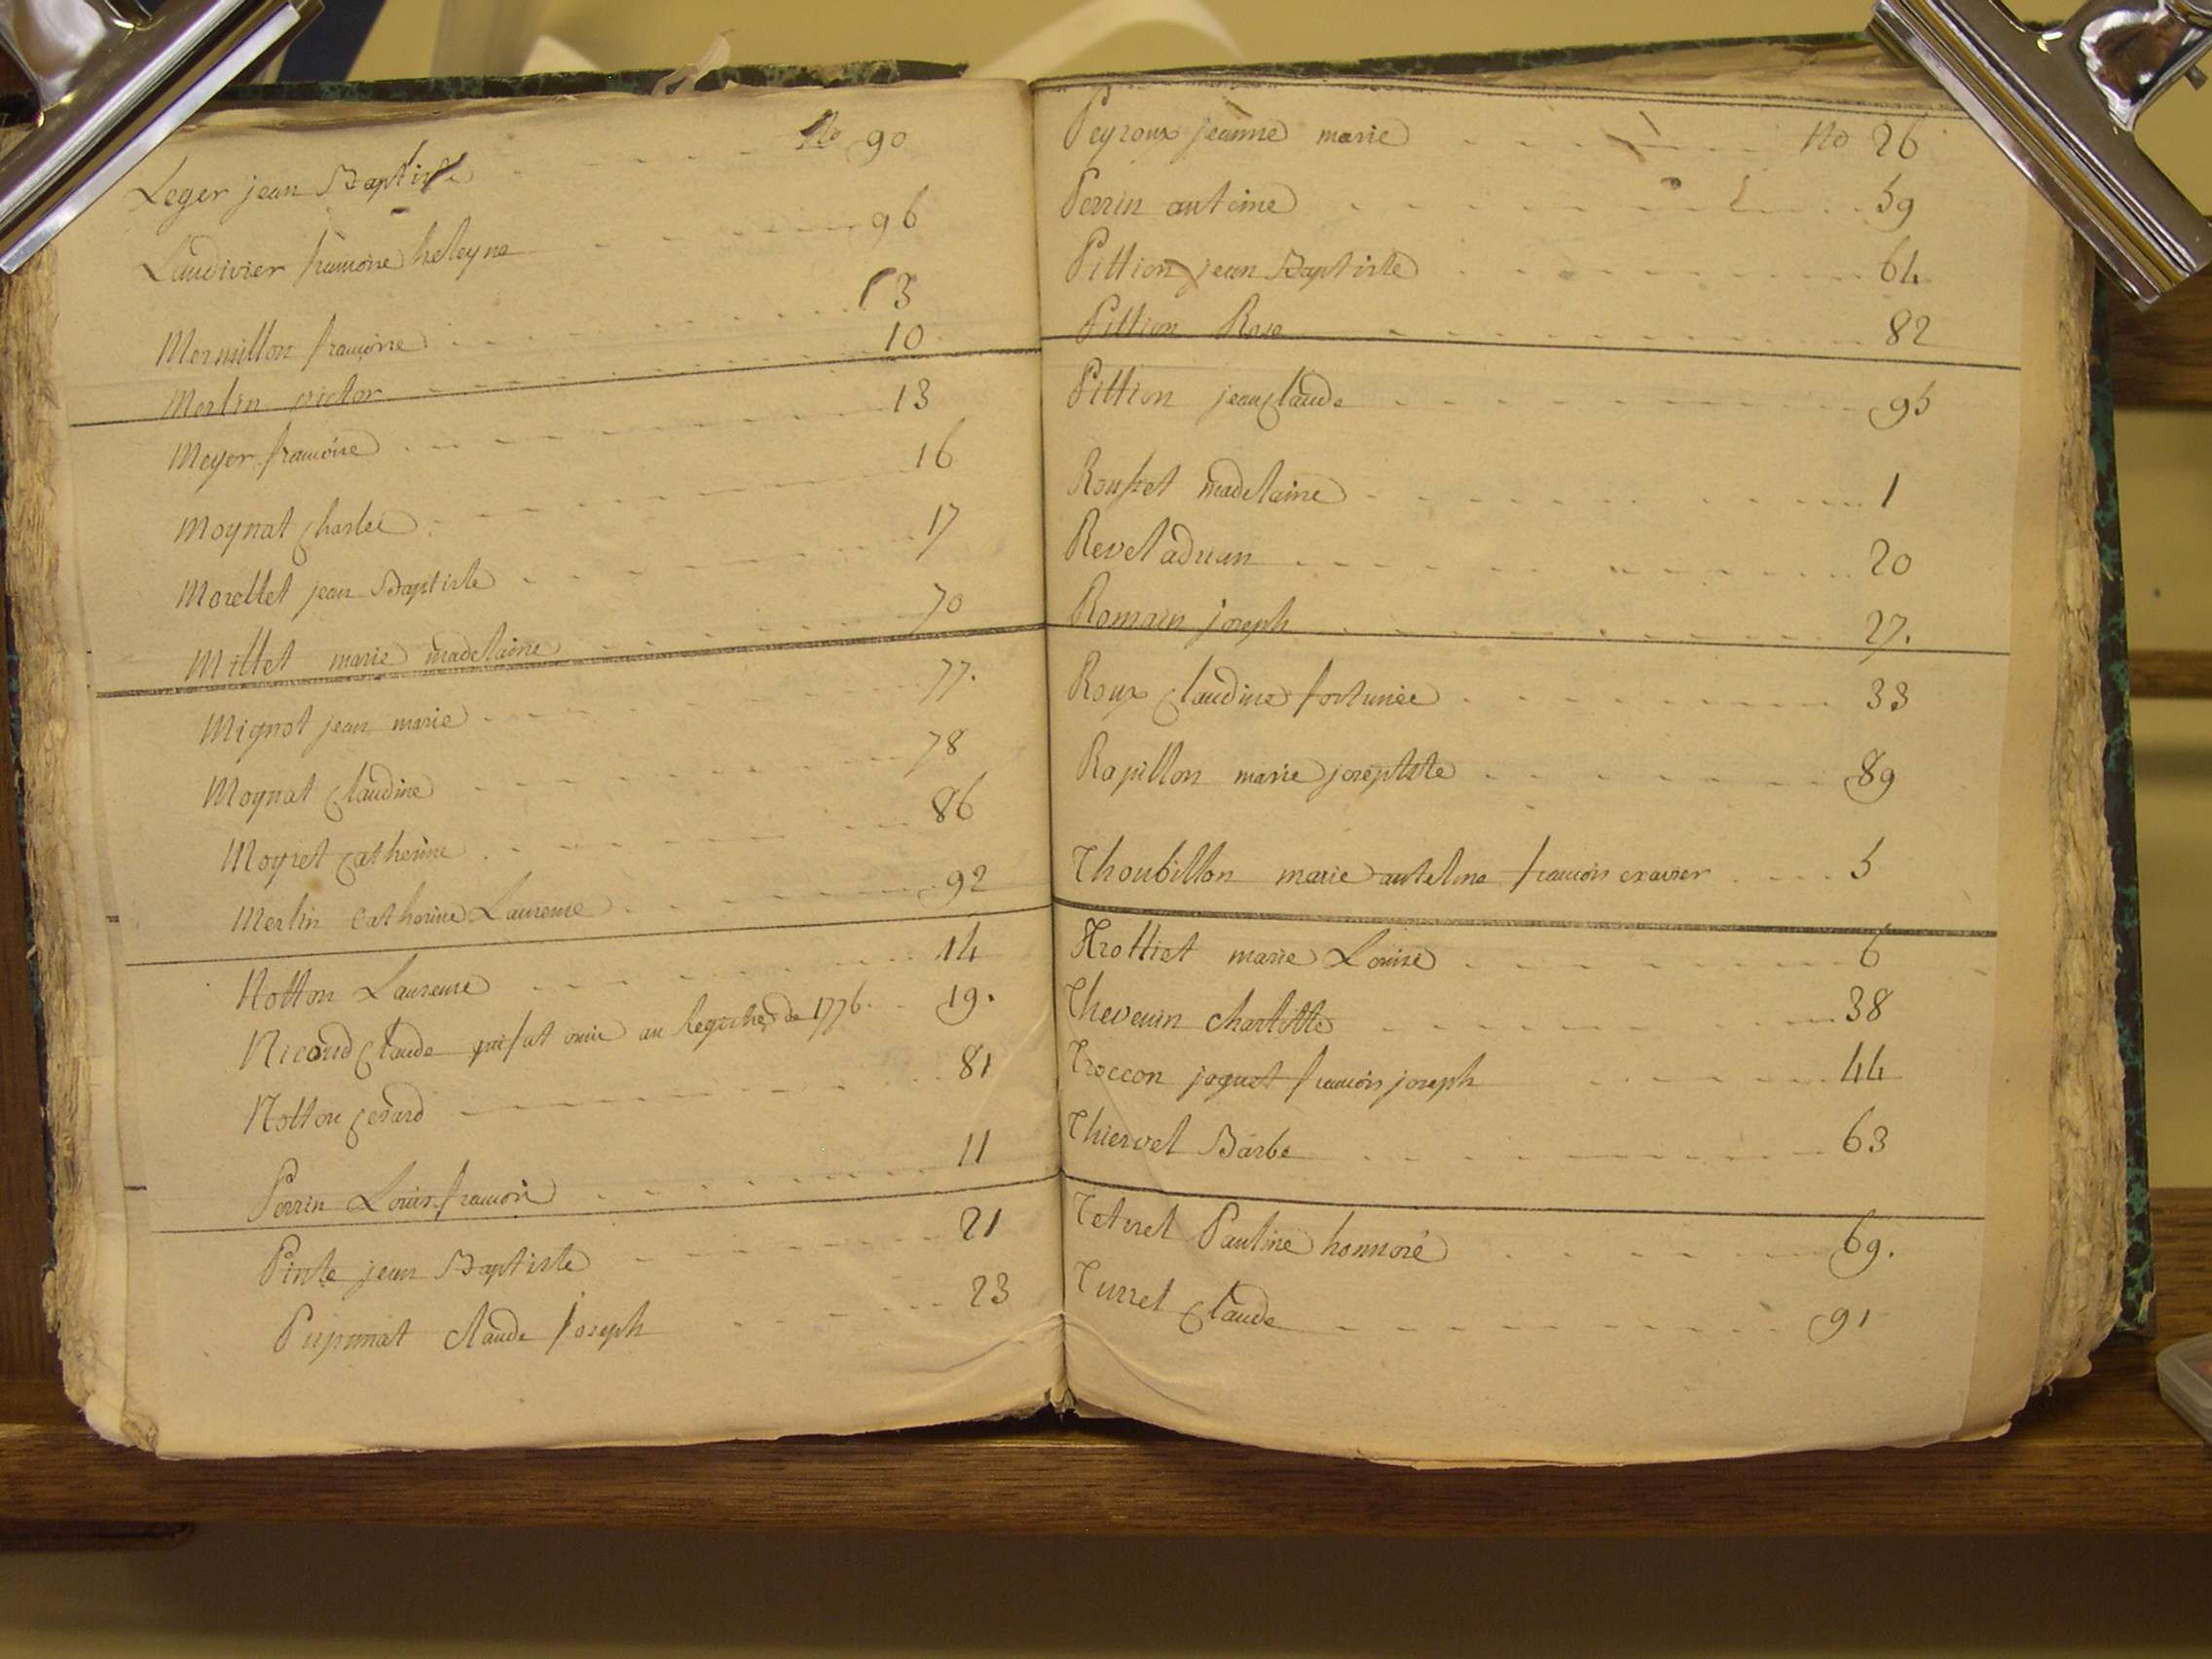 Leger jean Baptiste No 90
Laudivier francoise heleyne 96
Mermillon francoise 3
Merlin victor 10
Meyer francoise 13
Moynat Charles 16
Morellet jean Baptiste 17
Millet marie madelaine 70
Mignot jean marie 77.
Moynat Claudine 78
Moyret Catherine 86
Merlin Catherine Laurence 92
Notton Laurence 14
Nicoud Claude qui fut omis au Registre de 1776. 19.
Notton Gerard 81
Perrin Louis francois 11
Pinte jean Baptiste 21
Pupunat claude joseph 23
Peyroux jeanne marie No 26
Perrin antoine 59
Pittion jean Baptiste 64
Pittion Rose 82
Pittion jean Claude 95
Rousset madelaine 1
Revel adrian 20
Romain joseph 27.
Roux Claudine fortunée 33
Rapillon marie josephte 89
Thoubillon marie antelme francois exavier 5
Trottiet marie Louise 6
Thevenin charlotte 38
Troccon joquet francois joseph 44
Thiervet Barbe 63
Teteret Pauline honnoré 69.
Turret Claude 91